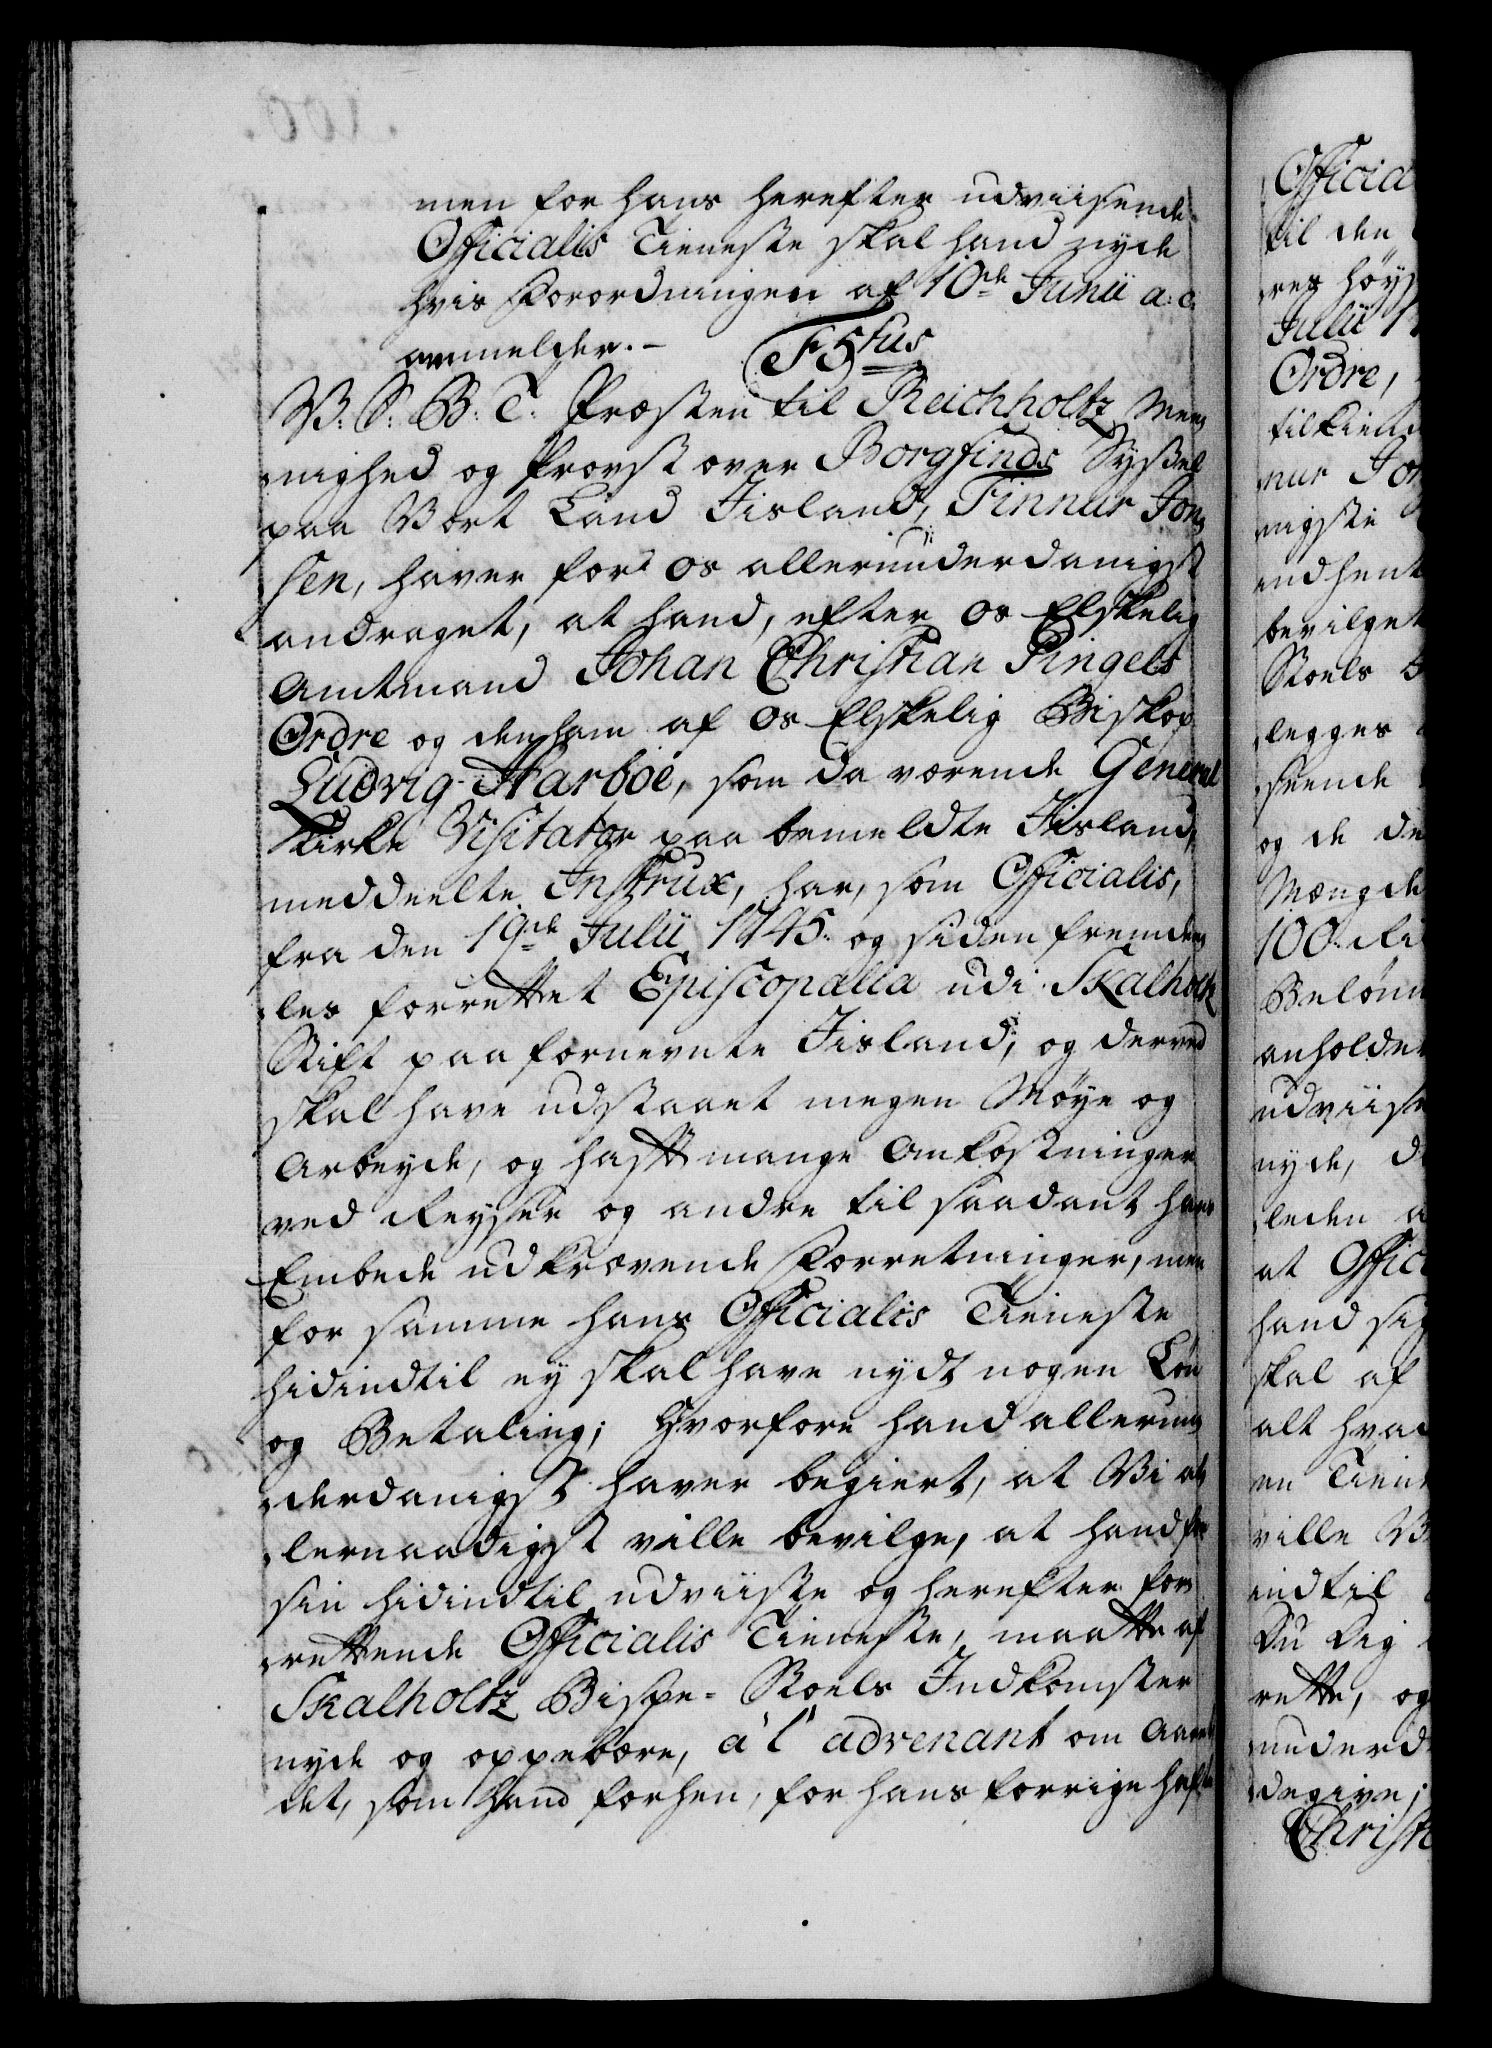 men for hans herefter udviisende
Officialis Tieneste skal hand nyde
hvis Forordningen af 10de Junii a: c.
anmelder.- F5tus
V: S: B: T: Præsten til Reichholtz Mee
nighed og Provst over Borgfinds Syssel
paa Vort Land Iisland, Finnur Jon
sen, haver for Os allerunderdanigst
andraget, at hand, efter Os Elskelig
Amtmand Johan Christian Pingels
Ordre og den ham af Os Elskelig Biskop
Ludvig Harboe, som da værende General
Kirke Visitator paa bemeldte Iisland,
meddeelte Instrux, har, som Officialis,
fra den 19de Julii 1745. og siden fremde
les forrettet Episcopalia udi Skalholtz
Stift paa fornevnte Iisland, og derved
skal have udstaaet megen Møye og
Arbeyde, og hafft mange Omkostninger
ved Reyser og andre til saadant hans
Embede udkrævende Forretninger, men
for samme hans Officialis Tieneste
hidindtil ey skal have nydt nogen Løn
og Betaling; Hvorfore hand allerun
derdanigst haver begiert, at Vi al
lernaadigst ville bevilge, at hand for
sin hidindtil udviiste og herefter for
rettende Officialis Tieneste, maatte af
Skalholtz Bispe- Stoels Indkomster
nyde og oppebære, a l' advenant om Aaret
det, som hand forhen, for hans forrige hafte
Officia
til den
res høys
Julii 1
Ordre,
tilkiend
nur Jon
nigste
indhent
bevilget
Stoels B
legges
seende
og de de
Mængde
100. Ri
Belønn
anholder
udviise
nyde, d
leden a
at Offici
hand sig
skal af
alt hvad
en Tiene
ville V
indtil
Du Dig
rette, og
underd
degive;
Christ